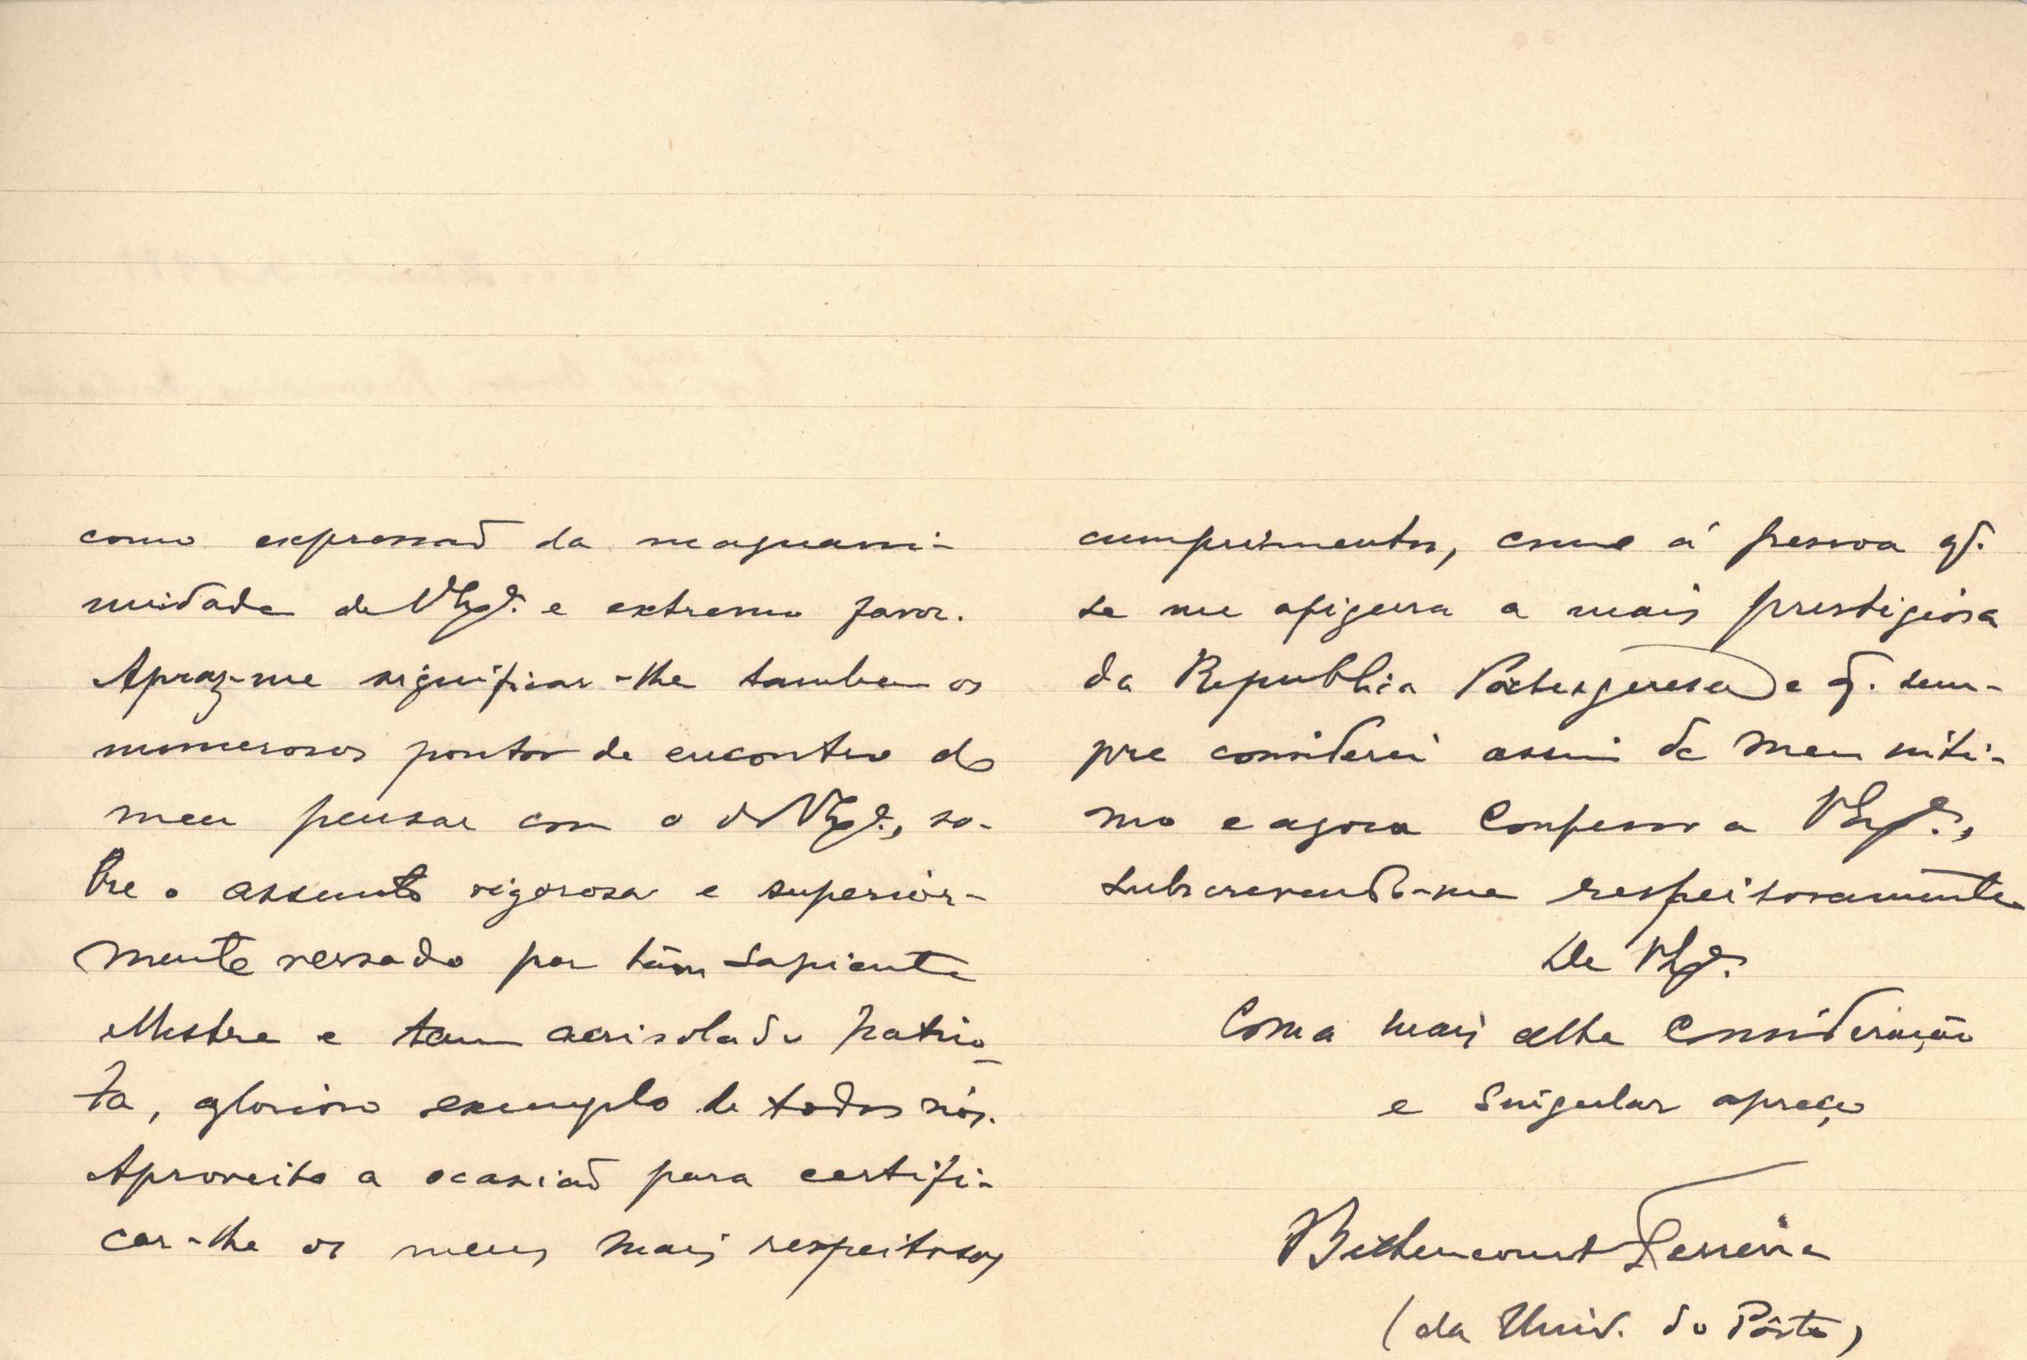 como expressaõ da magnani-
midade de V. Exª. e extremo favor.
Apraz-me significar-lhe tambem os
numerosos pontos de encontro do
meu pensar com o de V. Exª., so-
bre o assunto rigorosa e superior-
mente versado por tam sapiente
Mestre e tam acrisolado patrio-
ta, glorioso exemplo de todos nós.
Aproveito a ocasiaõ para certifi-
car-lhe os meus mais respeitosos
cumprimentos, como á pessoa q.
se me afigura a mais prestigiosa
da Republica Portuguesa e q. sem-
pre considerei assim de meu inti-
mo e agora confesso a V. Exª.,
subscrevendo-me respeitosamente
De V. Exª.
Com a mais alta consideração
e singular apreço
Bettencourt Ferreira
(da Univ. do Pôrto)